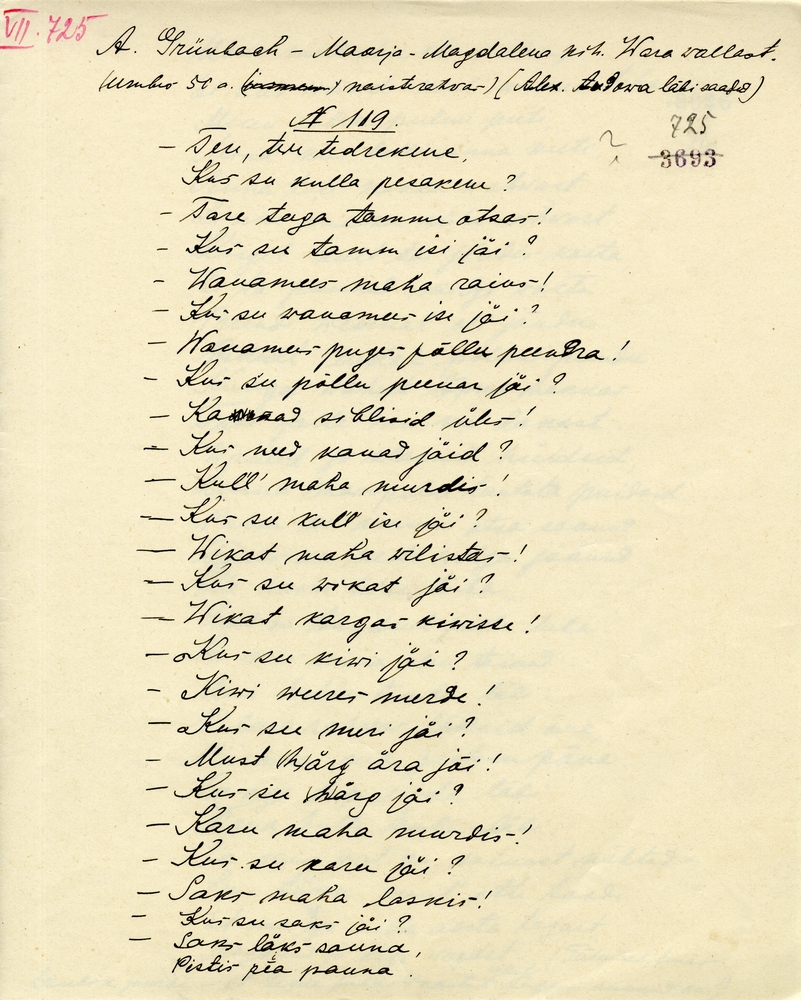 VII. 725
A. Grünbach - Maarja-Magdalena kih. Wara wallast.
(umbes 50 a. naisterahvas) (Alex. Tudowa läbi saadud)
№ 119.
725
- Tere, tere tedrekene,
?
3693
Kus su kulla pesakene?
- Tare taga tamme otsas!
- Kus see tamm isi jäi?
- Wanamees maha raius!
- Kus see wanamees ise jäi?
- Wanamees puges põllu peendra!
- Kus see põllu peenar jäi?
- Kanad siblisid üles!
- Kus need kanad jäid?
- Kull' maha murdis!
- Kus see kull' ise jäi?
- Wikat maha wilistas!
- Kus see wikat jäi?
- Wikat kargas kiwisse!
- Kus see kiwi jäi?
- Kiwi weeres merde!
- Kus see meri jäi?
- Must (h)ärg ära jõi!
- Kus see härg jäi?
- Karu maha murdis!
- Kus see karu jäi?
- Saks maha laskis!
- Kus see saks jäi?
- Saks läks sauna,
Pistis pēa pauna.